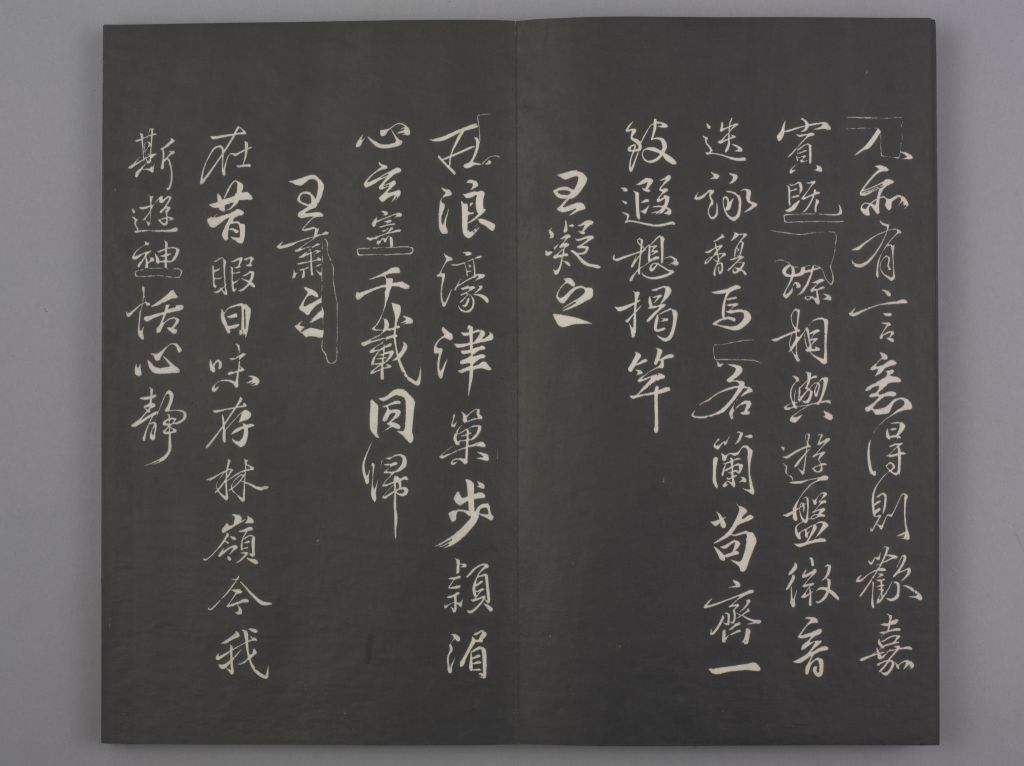 人亦有言意得則歡嘉
賓既臻相與遊盤微音
迭詠馥焉若蘭苟齊一
致遐想揭竿
王凝之
莊浪濠津巢步潁湄
心玄寄千載同歸
王肅之
在昔暇日味存林嶺今我
斯遊神恬心靜